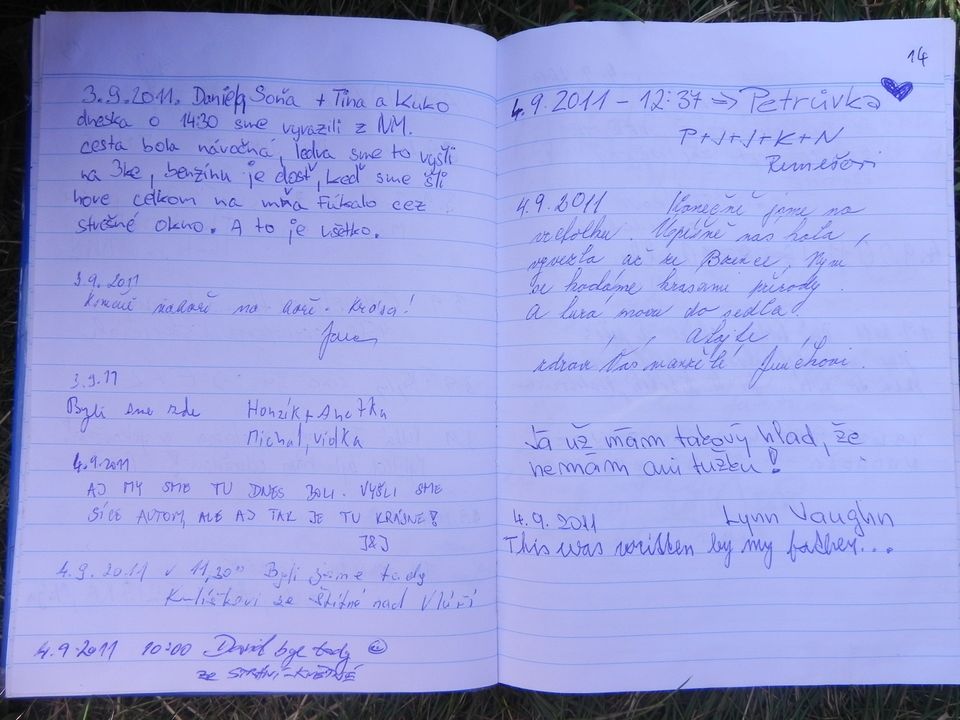 3.9.2011. Daniela, Soňa + Tina a Kuko
dneska o 14:30 sme vyrazili z NM.
cesta bola náročná, ledva sme to vyšli
na 3ke, benzínu je dosť, keď sme šli
hore celkom na mňa fúkalo cez
strešné okno. A to je všetko.
3.9.2011
Krásá!
3.9.11
Byli sme zde Honzík + Anežka
Michal, vidka
4.9.2011
AJ MY SME TU DNES BOLI. VYŠLI SME
SÍCE AUTOM, ALE AJ TAK JE TU KRÁSNE!
J&J
4.9.2011 v 11,30" Byli jsme tady
ze Štítné nad Vláří
4.9.2011 10:00 David byl tady
ze STRÁNÍ-KVĚTNÉ
14
4.9.2011 - 12:37 => Petrůvka
P+J+J+K+N
4.9.2011 Konečně jsme na
vrcholku. nás
vyvezla až ze
se kocháme krásami přírody.
A hurá znovu do sedla.
zdraví Vás manželé
Já už mám takový hlad, že
nemám ani tužku!
4.9.2011 Lynn Vaughn
This was written by my father...